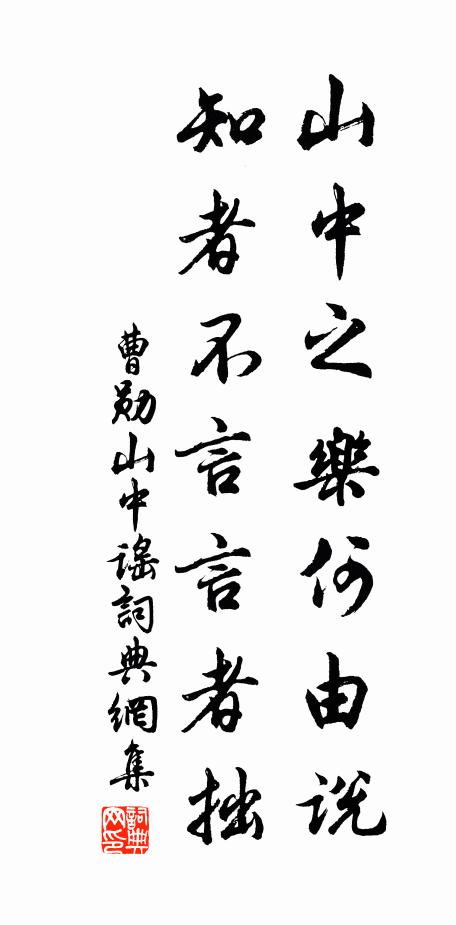 山中之樂何由説
知者不言言者拙
曹勛山中謠詞典網集
詞典網印